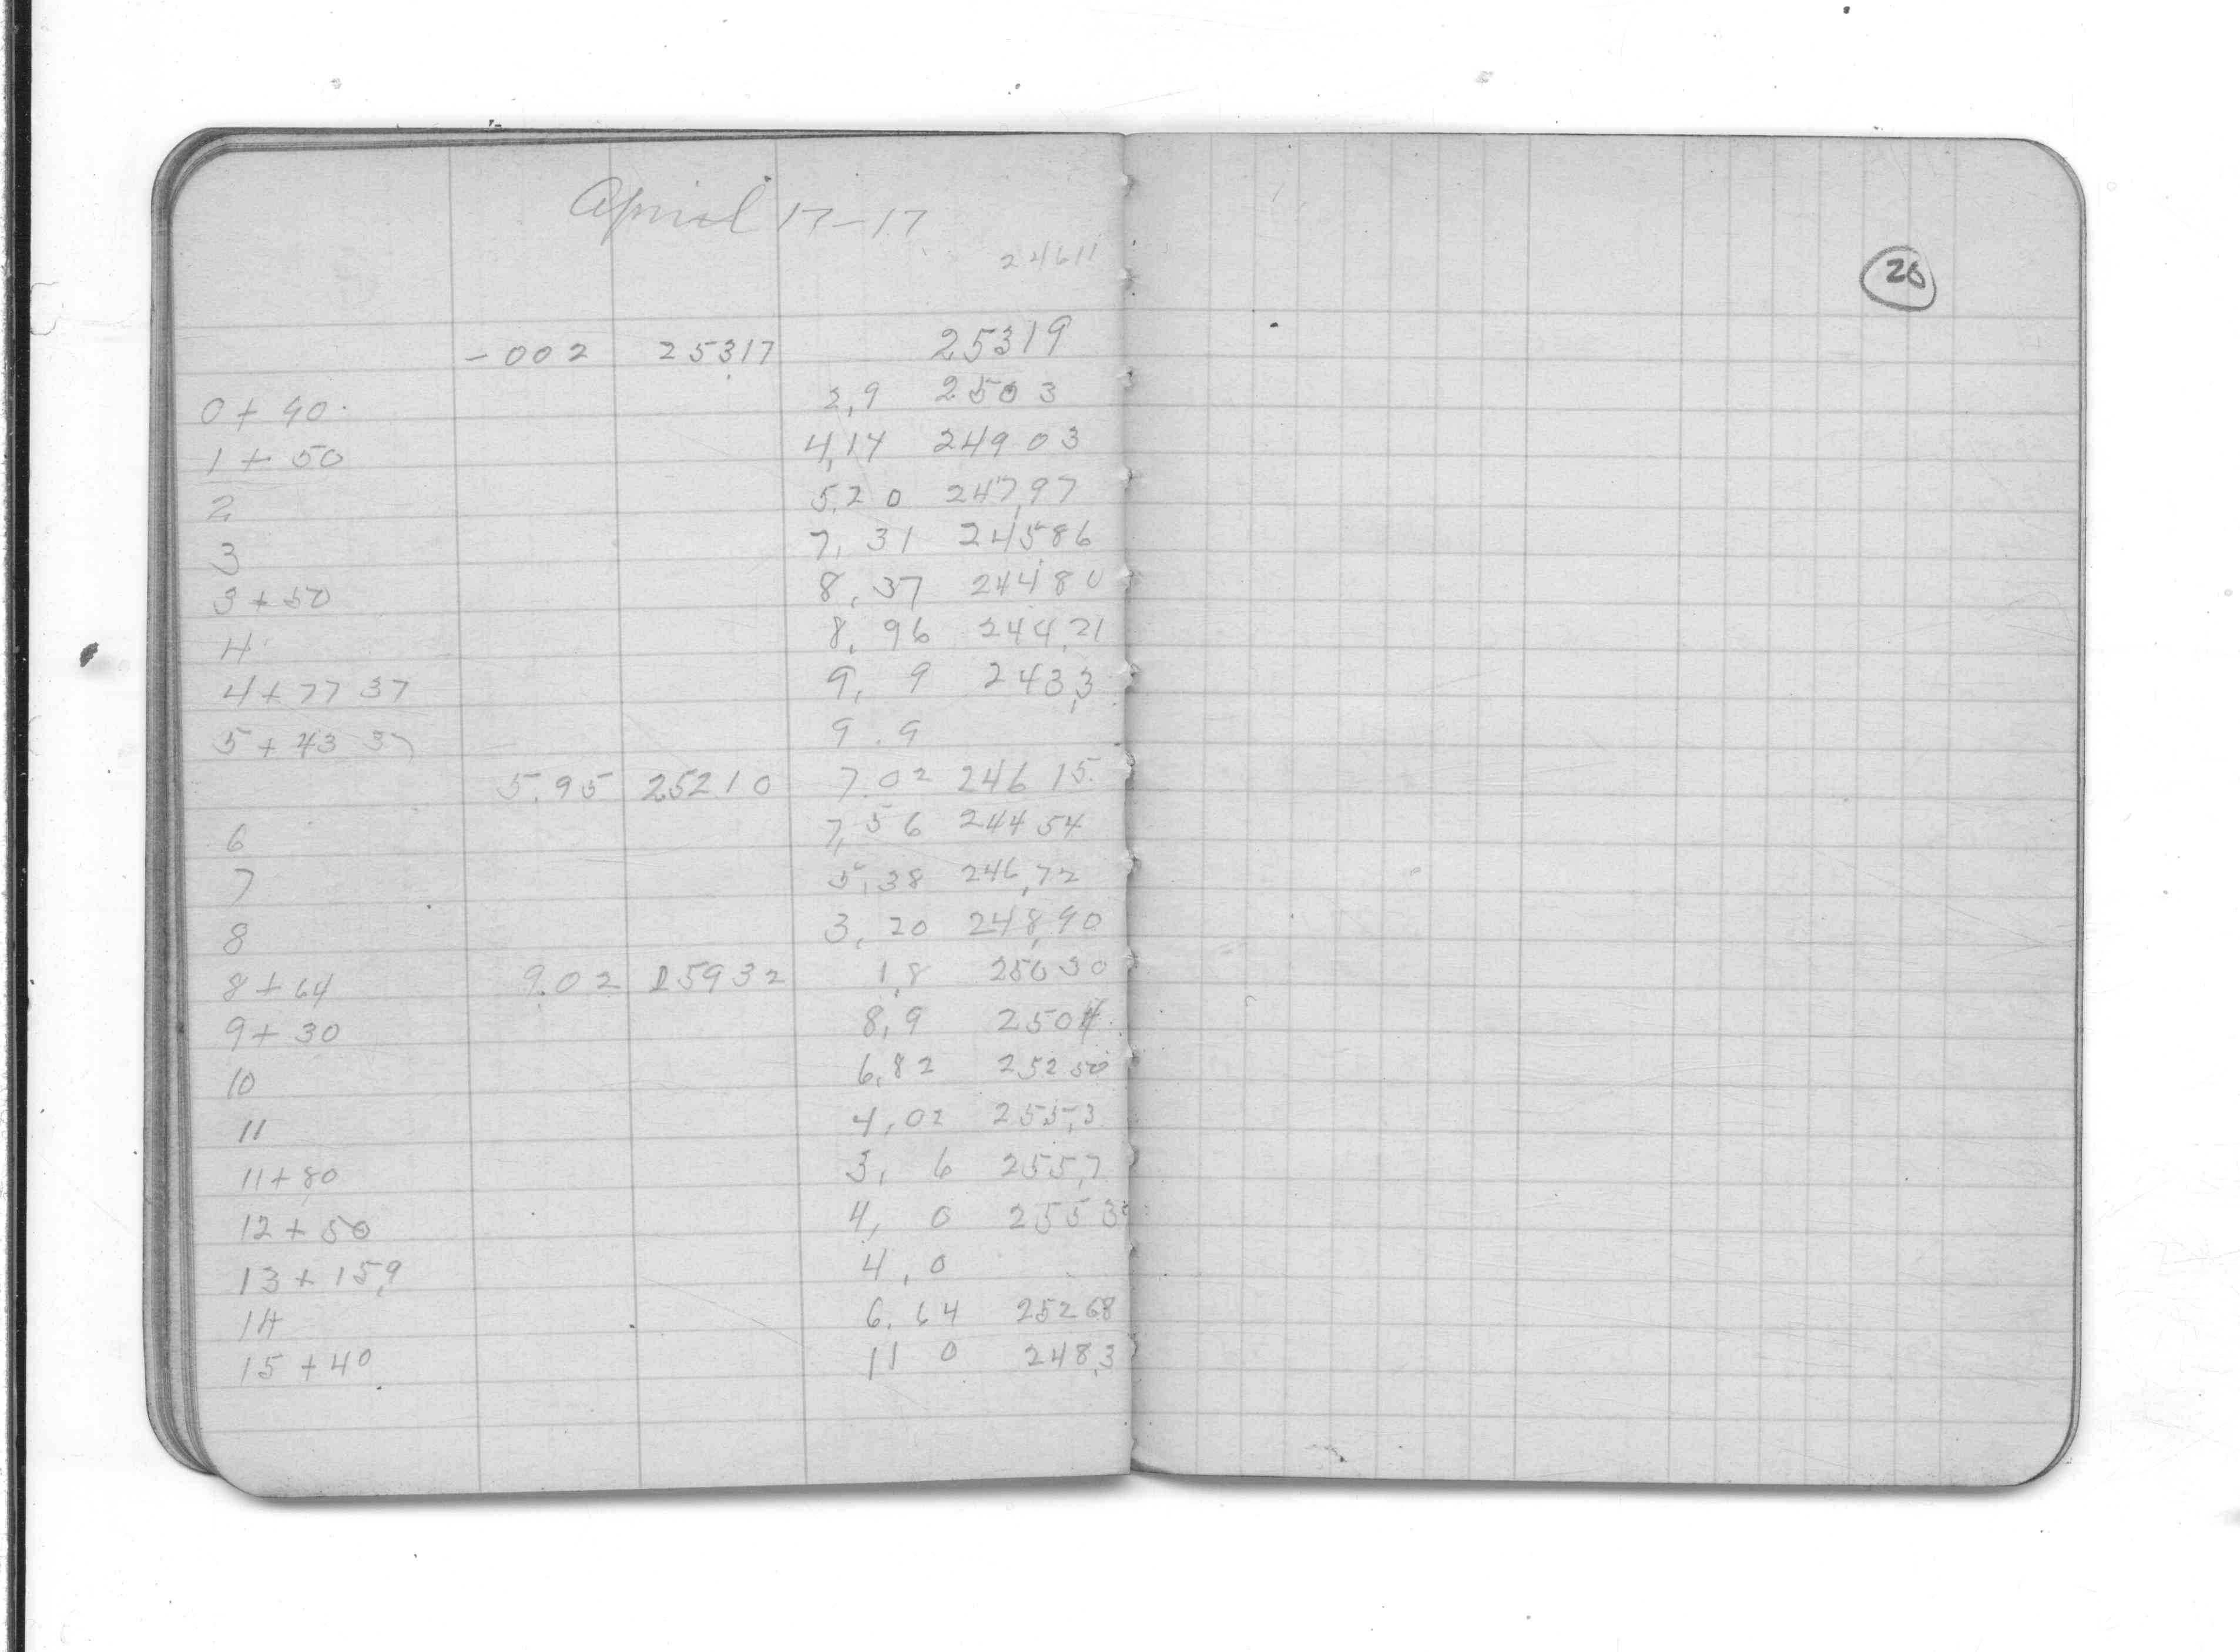 April 17-17
24611
-002 25317 25319
0+40 2,9 2503
1+50 4,14 24903
2 5,20 247,97
3 7,31 245,86
3+50 8,37 244,80
4 8,96 244,21
4+77 37 9,9 243,3
5+43 37 9.9
5.95 252 10 7.02 246 15
6 7,56 244 54
7 5,38 246,72
8 3,20 248,90
8+64 9.02 25932 1,8 25030
9+30 8,9 2504
10 6,82 252 50
11 4,02 255,3
11+80 3,6 255,7
12+50 4,0 2553
13+15,9 4,0
14 6,64 25268
15+40 11 0 248,3
20